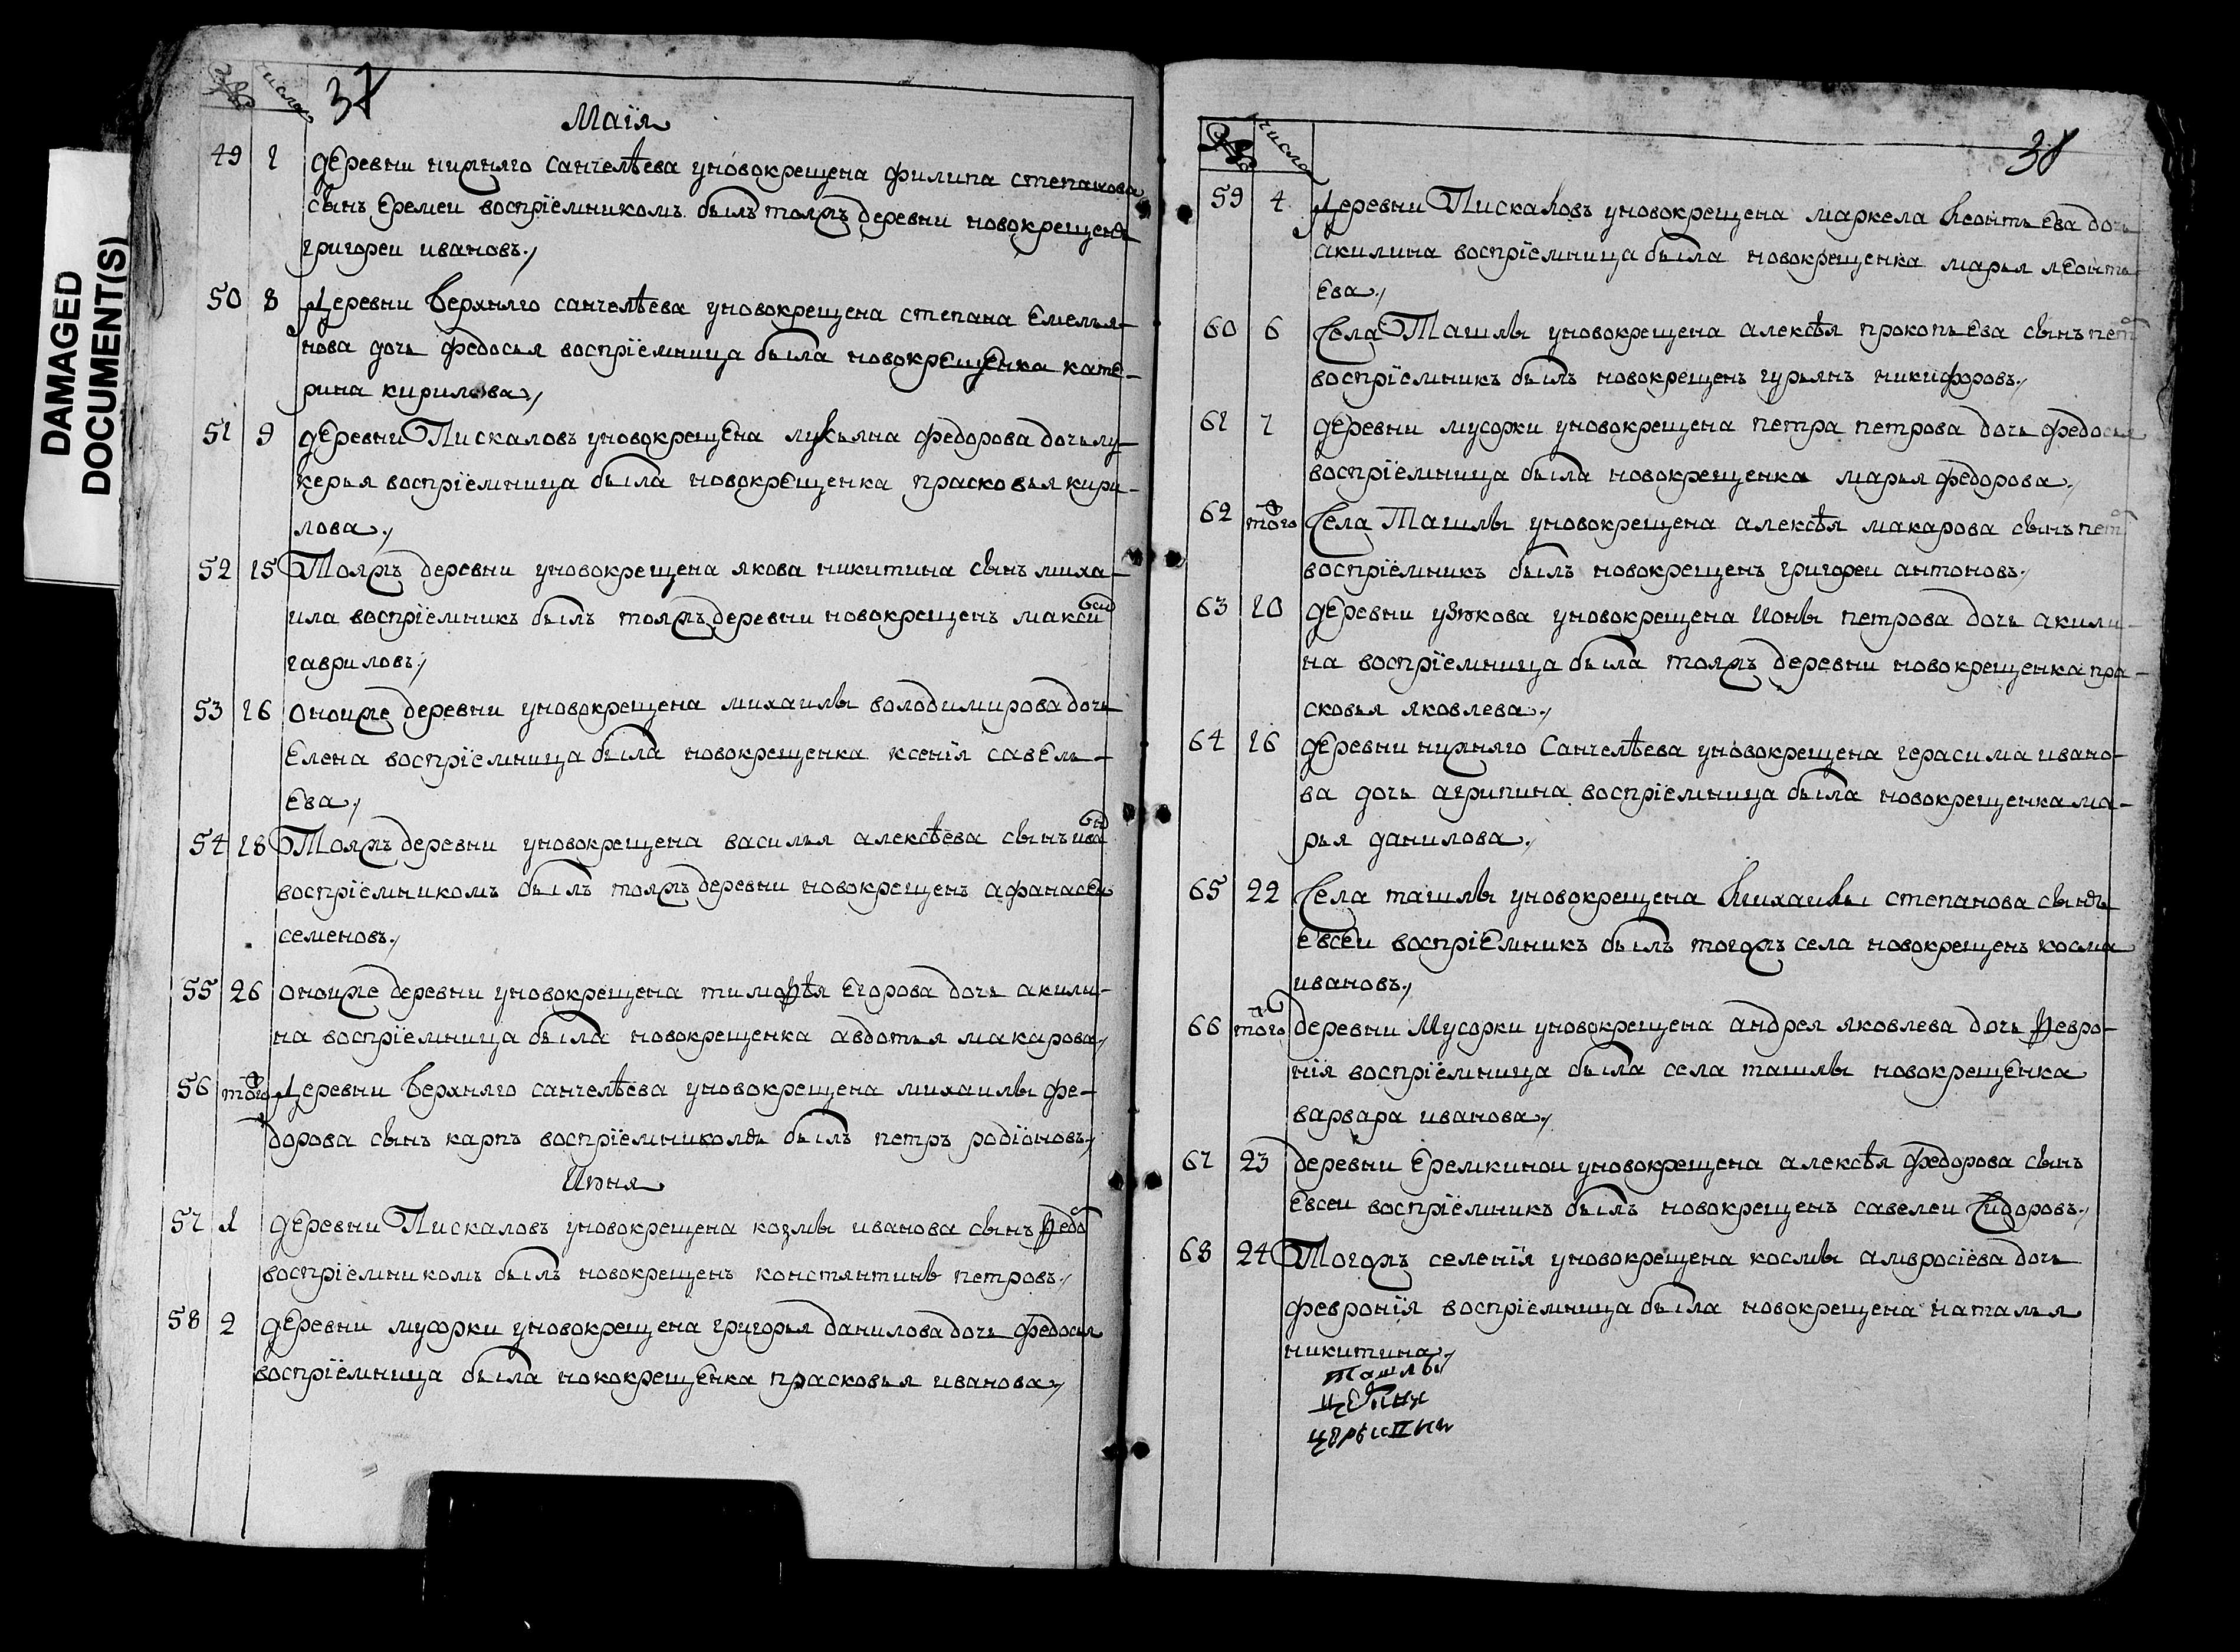 DAMAGED
DOCUMENT(S)
№ числа 37
Маїя
49 1 деревни нижняго санчелѣева уновокрещена филипа степанова
сынъ Еремеи воспрїемникомъ былъ тояжъ деревни новокрещенъ
григореи ивановъ
50 8 Деревни верхняго санчелѣева уновокрещена степана Емелья-
нова дочь федосья воспрїемница была новокрещенка кате-
рина кирилова
51 9 деревни Пискаловъ уновокрещена лукьяна федорова дочь лу-
керья воспрїемница была новокрещенка прасковья кири-
лова
52 15 Тояжъ деревни уновокрещена якова никитина сынъ миха-
ила воспрїемникъ былъ тояжъ деревни новокрещенъ макси
гавриловъ
53 16 оноиже деревни уновокрещена михаилы володимирова дочь
Елена воспрїемница была новокрещенка ксенїя савель-
Ева
54 18 Тояжъ деревни уновокрещена василья алексѣева сынъ ива
воспрїемникомъ былъ тояжъ деревни новокрещенъ афанасеи
семеновъ
55 26 оноиже деревни уновокрещена тимоѳѣя Егорова дочь акили-
на воспрїемница была новокрещенка авдотья макарова
56 тогож Деревни верхняго санчелѣева уновокрещена михаилы фе-
дорова сынъ карпъ воспрїемникомъ былъ петръ родїоновъ
Июня
57 1 деревни Пискаловъ уновокрещена козмы иванова сынъ ѳедо
воспрїемникомъ былъ новокрещенъ констянтинъ петровъ
58 2 деревни мусорки уновокрещена григорья данилова дочь федосья
воспрїемница была нококрещенка прасковья иванова
№ числа 38
59 4 Деревни Пискаловъ уновокрещена маркела Леонтьева дочь
акилина воспрїемница была новокрещенка марья леонть
Ева
60 6 Села Ташлы уновокрещена алексѣя прокопьева сынъ пет
воспрїемникъ былъ новокрещенъ гурьянъ никифоровъ
61 7 деревни мусорки уновокрещена петра петрова дочь федосья
воспрїемница была новокрещенка марья федорова
62 тогож Села Ташлы уновокрещена алексѣя макарова сынъ пет
воспрїемникъ былъ новокрещенъ григореи антоновъ
63 10 деревни узюкова уновокрещена Ионы петрова дочь акили-
на воспрїемница была тояжъ деревни новокрещенка пра-
сковья яковлева
64 16 деревни нижняго Санчелѣева уновокрещена герасима ивано-
ва дочь агрипина воспрїемница была новокрещенка ма-
рья данилова
65 22 Села ташлы уновокрещена Михаилы степанова сынъ
Евсеи воспрїемникъ былъ тогожъ села новокрещенъ косма
ивановъ
66 тогож деревни Мусорки уновокрещена андрея яковлева дочь ѳевро-
нїя воспрїемница была села ташлы новокрещенка
варвара иванова
67 23 деревни Еремкинои уновокрещена алексѣя федорова сынъ
Евсеи воспрїемникъ былъ новокрещенъ савелеи Сидоровъ
68 24 Тогожъ селенїя уновокрещена космы амвросїева дочь
февронїя воспрїемница была новокрещена наталья
никитина
ташлы